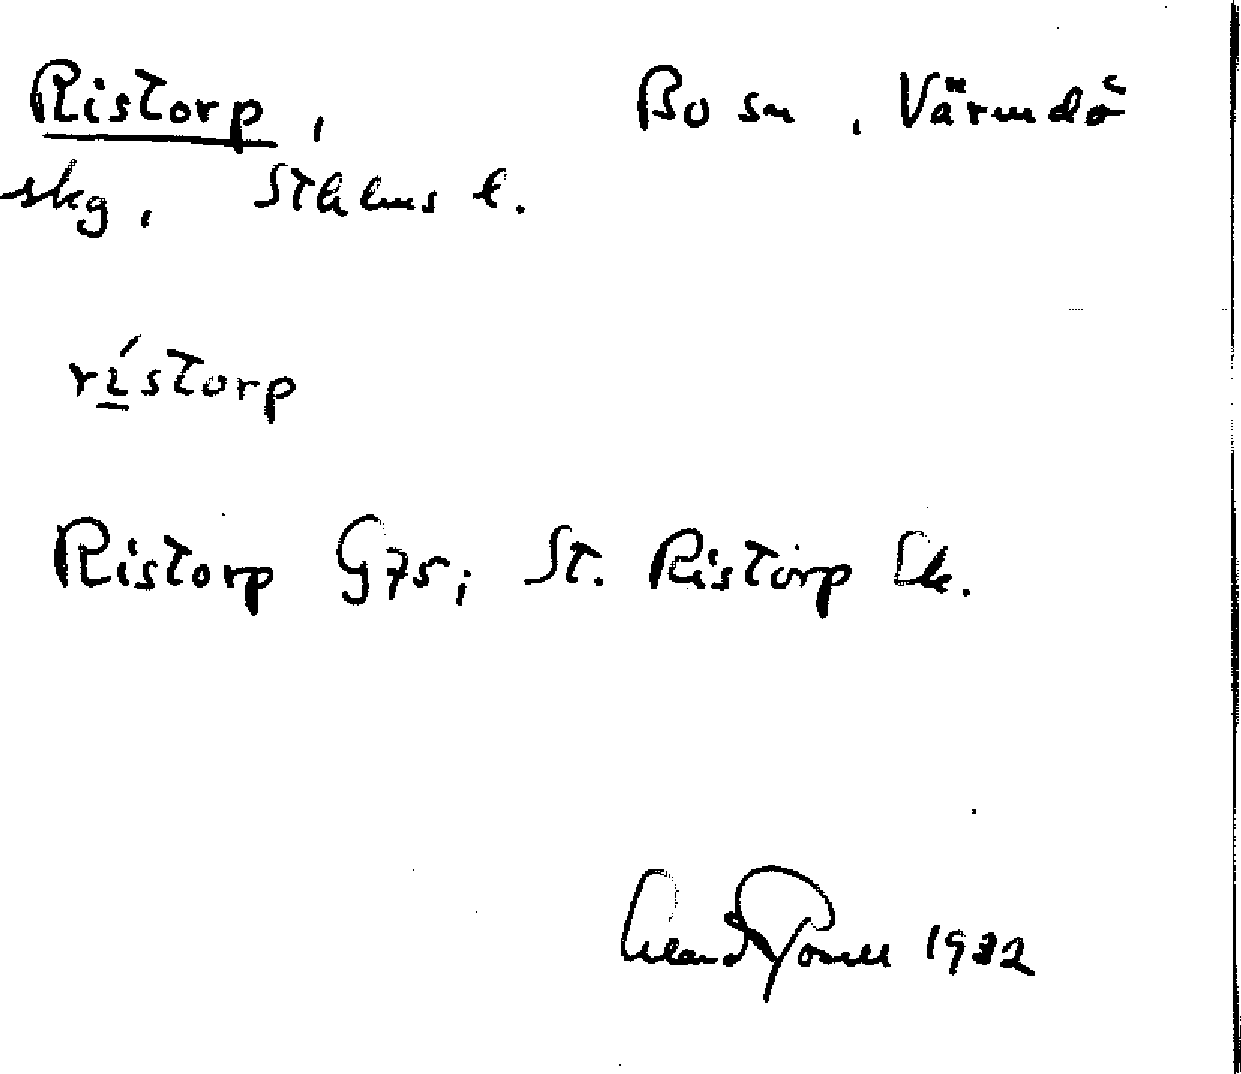 Ristorp, Bo sn, Värmdö
skg, Sthlms l.
rístorp
Ristorp G75; St. Ristorp Sk.
1932